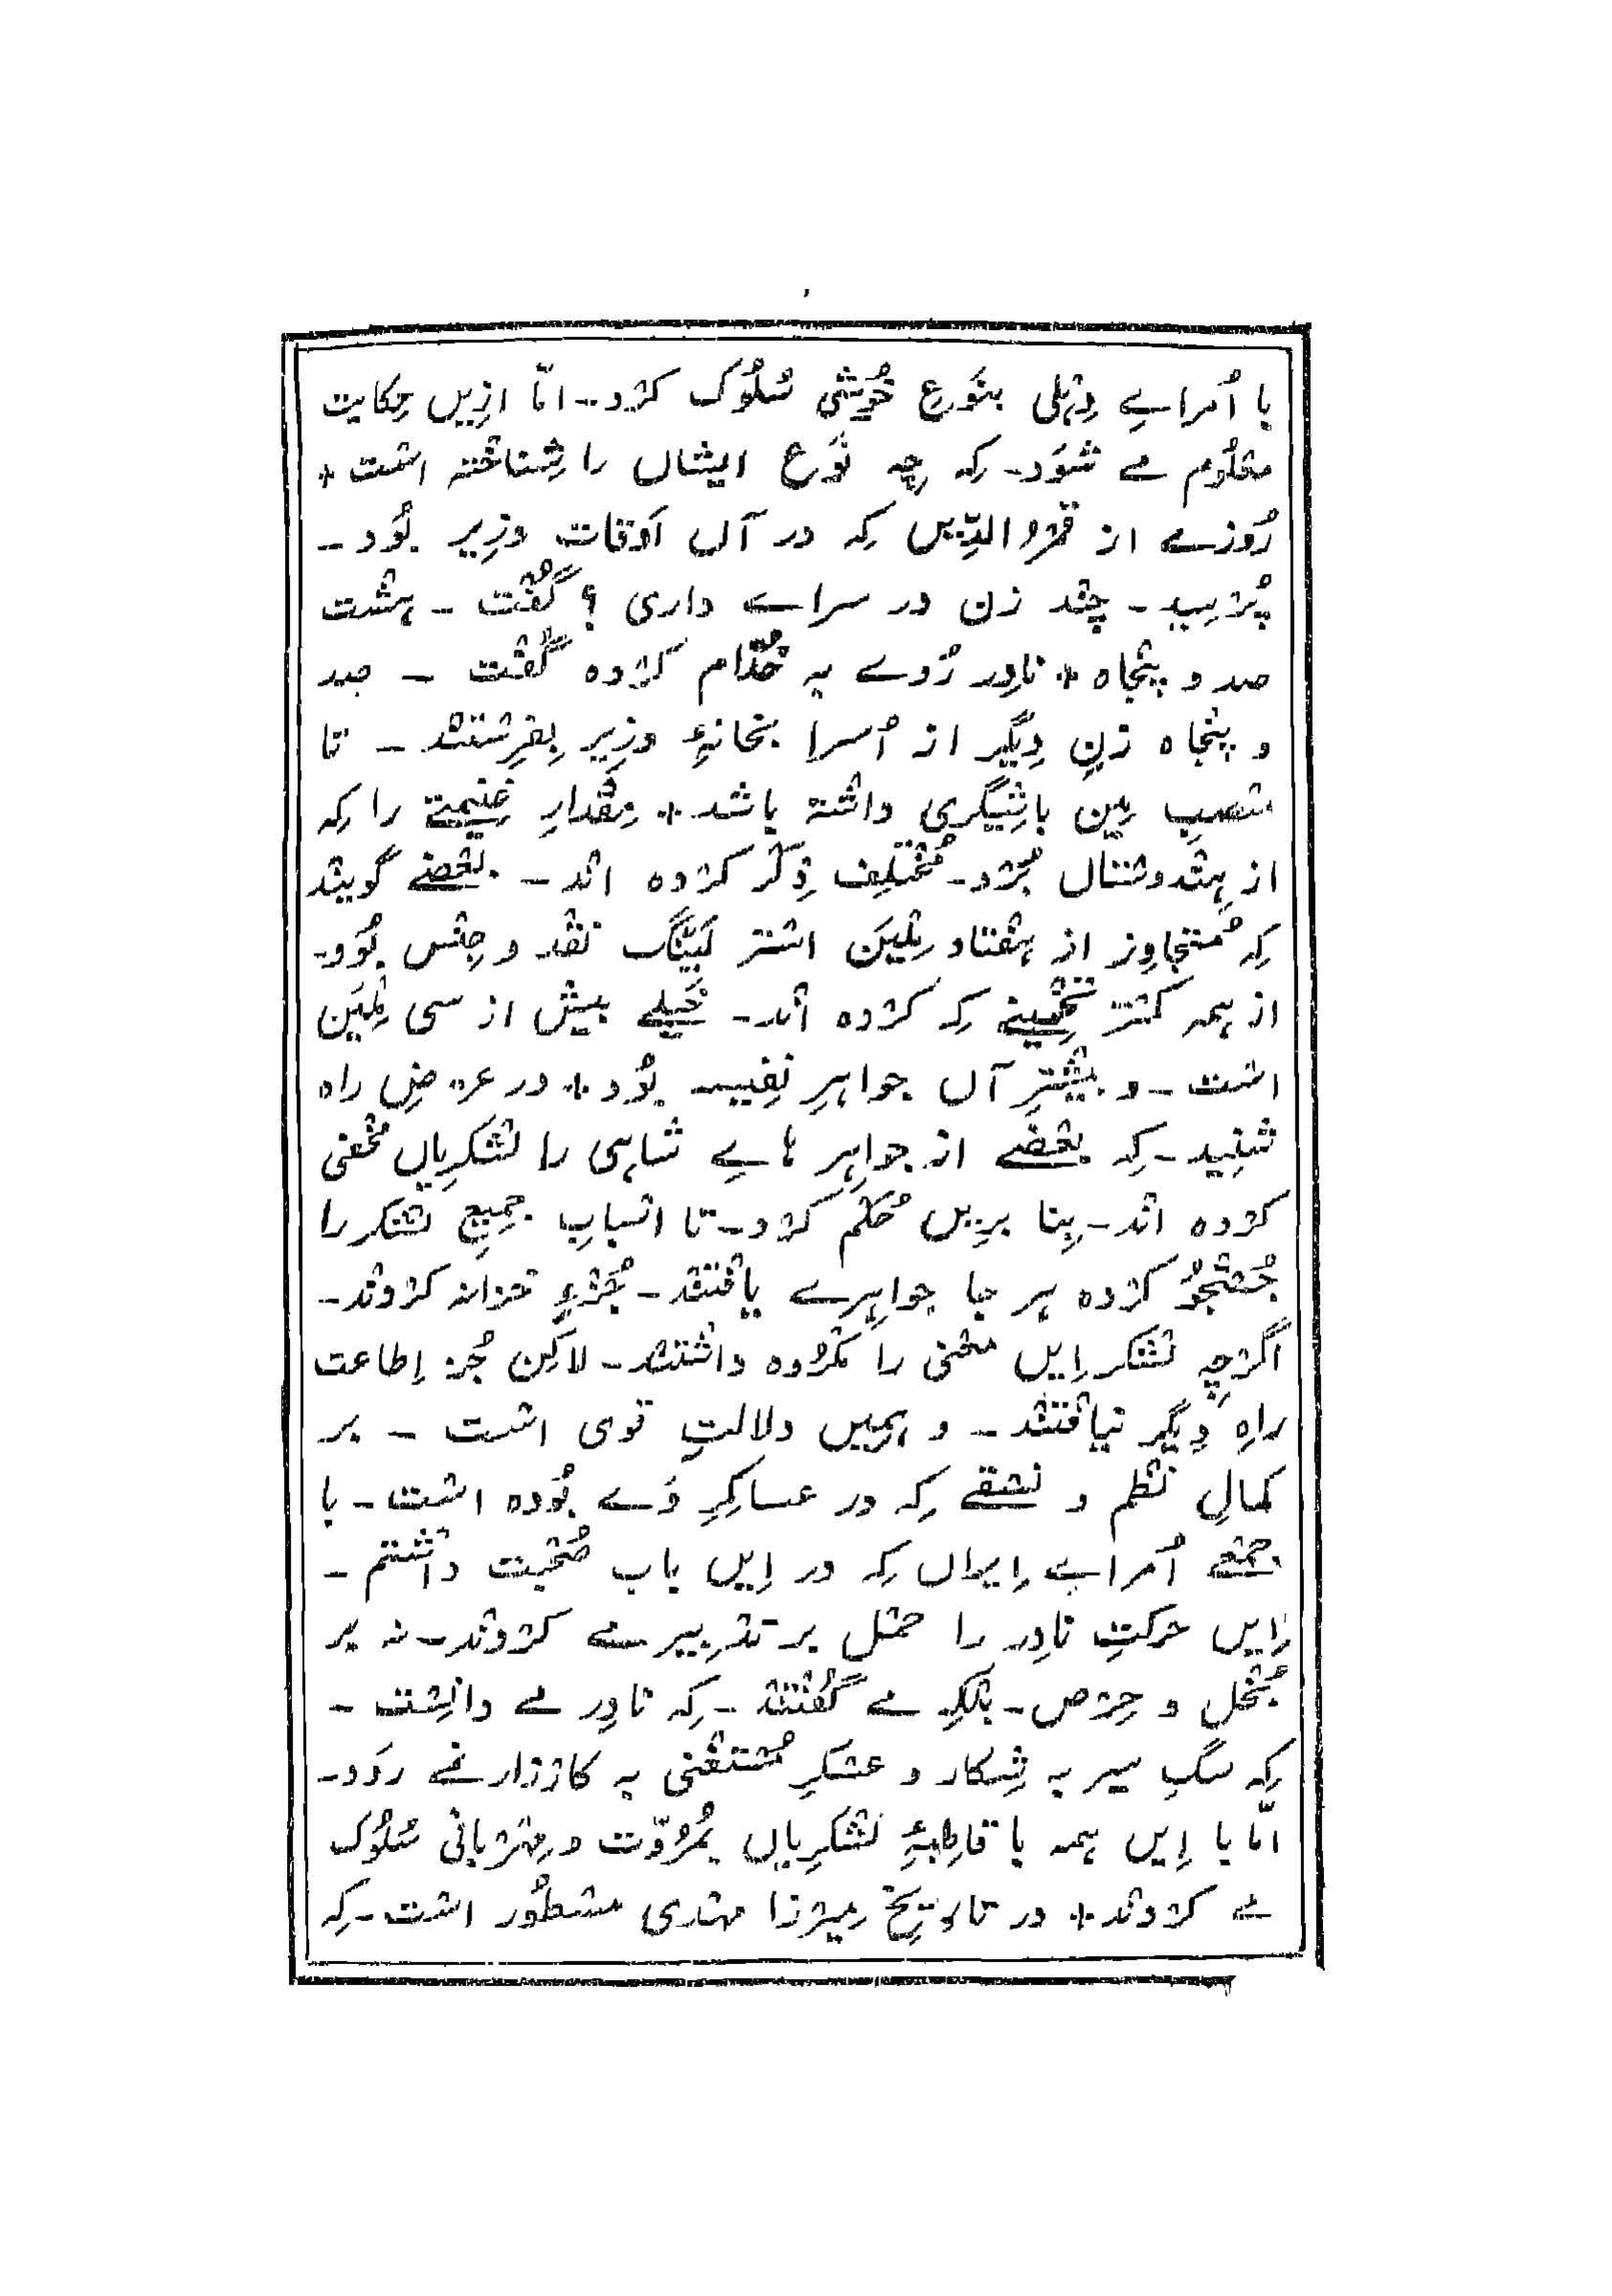 با اُمراے دِہلی بنَوعِ خُوشی سُلُوک کرْد۔ امّا ازِیں حِکایت
معْلُوم مے شَوَد۔ کہ چہ نَوع ایشاں را شِناخْتہ اسْت *
رُوزے از قمْرُ الدِّیں کہ در آں اَوقات وزِیر بُود ۔
پُرْسِید ۔ چنْد زن در سراے داری ؟ گُفْت ۔ ہشْت
صد و پنْجاہ * نادِر رُوے بہ خُدّام کرْدہ گُفْت ۔ صد
و پنْجاہ زنِ دِیگر از اُسرا بخانۂِ وزِیر بِفرِسْتنْد ۔ تا
منْصبِ مِین باشِیگری داشْتہ باشد * مِقْدارِ غنِیمتے را کہ
از ہِنْدوسْتاں بُرْد۔ مُخْتلِف ذِکْر کرْدہ انْد ۔ بعْضے گویَنْد
کہ مُتجاوِز از ہفْتاد مِلْیَن اسْترلَیْنْگ نقْد و جِنْس بُود۔
از ہمہ کمْتر تخْمِینے کہ کرْدہ انْد۔ خَیلے بیش از سی مِلْیَن
اسْت ۔ و بیشْترِ آں جواہِرِ نفِیسہ بُود * در عرْضِ راہ
شنِید ۔ کہ بعْضے از جواہِر ہاے شاہی را لشْکرِیاں مخْفی
کرْدہ انْد۔ بِنا برِیں حُکْم کرْد۔ تا اسْبابِ جمِیعِ لشْکر را
جُسْتْجُو کرْدہ ہر جا جواہِرے یافْتنْد۔ جُزْءِ خزانہ کرْدنْد۔
اگرْچِہ لشْکر اِیں معْنی را مکْرُوہ داشْتنْد۔ لاکِن جُز اِطاعت
راہِ دِیگر نیافْتنْد ۔ و ہمِیں دلالتِ قوی اسْت ۔ بر
کمالِ نظْم و نسْقے کہ در عساکِرِ وَے بُودہ اسْت۔ با
جمْعے اُمراے اِیراں کہ در اِیں باب صُحْبت داشْتم ۔
اِیں حرکتِ نادِر را حمْل بر تدْبِیر مے کرْدنْد۔ نہ بر
بُخْل و حِرْص۔ بلْکِہ مے گُفْتنْد ۔ کہ نادِر مے دانِسْت ۔
کہ سگِ سیر بہ شِکار و عسْکرِ مُسْتغْنی بہ کارْزار نمے روَد۔
امّا با اِیں ہمہ با قاطِبۂِ لشْکرِیاں بمُرُوّت و مِہْرْبانی سُلُوک
مے کرْدنْد * در تارِیخِ مِیرْزا مہْدی مسْطُور اسْت۔ کہ